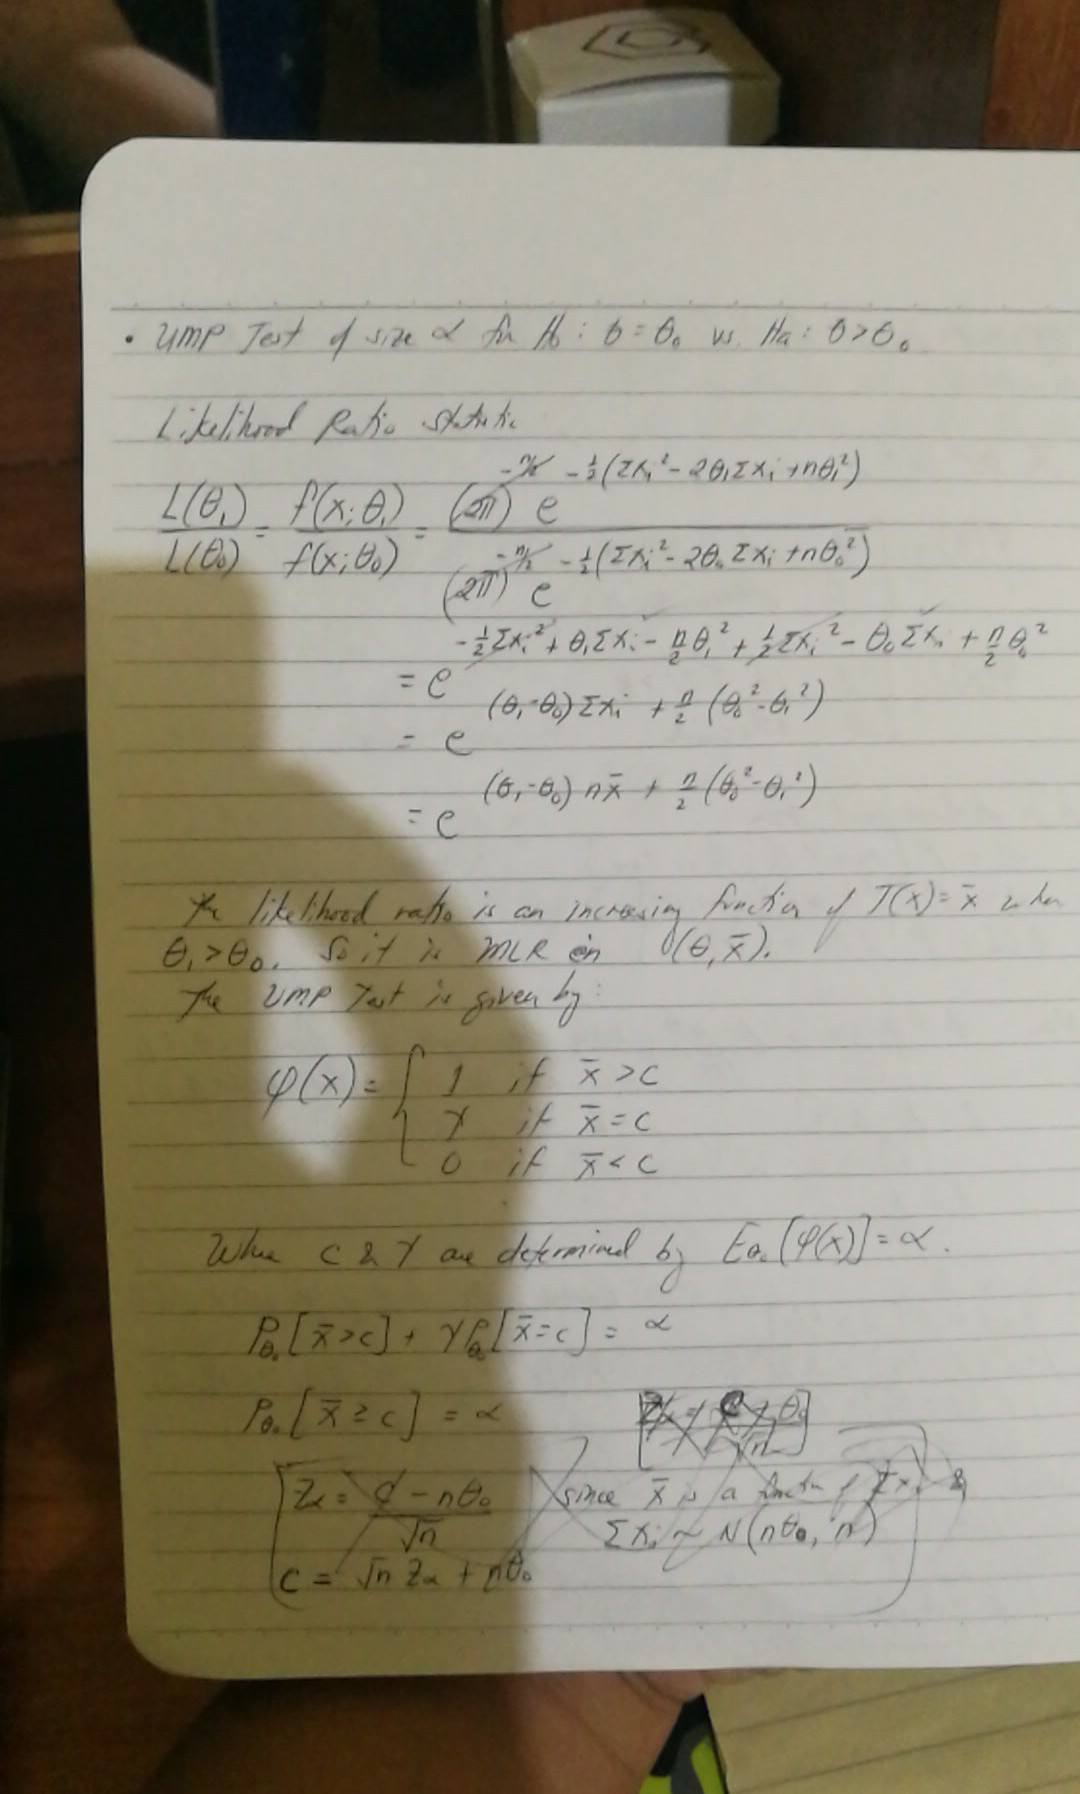 • UMP Test of size α for H₀ : θ = θ₀ vs. Ha : θ > θ₀
Likelihood Ratio statistic
L(θ₁)/L(θ₀) = f(x; θ₁)/f(x; θ₀) = (2π)^(-n/2) e^(-½(Σxᵢ² - 2θ₁Σxᵢ + nθ₁²)) / (2π)^(-n/2) e^(-½(Σxᵢ² - 2θ₀Σxᵢ + nθ₀²))
= e^(-½Σxᵢ² + θ₁Σxᵢ - n/2 θ₁² + ½Σxᵢ² - θ₀Σxᵢ + n/2 θ₀²)
= e^((θ₁-θ₀)Σxᵢ + n/2 (θ₀²-θ₁²))
= e^((θ₁-θ₀) nx̄ + n/2 (θ₀²-θ₁²))
The likelihood ratio is an increasing function of T(x) = x̄ when
θ₁ > θ₀. So it is MLR in (θ, x̄).
The UMP Test is given by:
φ(x) = { 1 if x̄ > c
γ if x̄ = c
0 if x̄ < c
Where c & γ are determined by E_θ₀[φ(x)] = α.
P_θ₀[x̄ > c] + γP_θ₀[x̄ = c] = α
P_θ₀[x̄ ≥ c] = α
Zα = (c - nθ₀)/√n since x̄ is a function of Σxᵢ &
Σxᵢ ~ N(nθ₀, n)
c = √n Zα + nθ₀